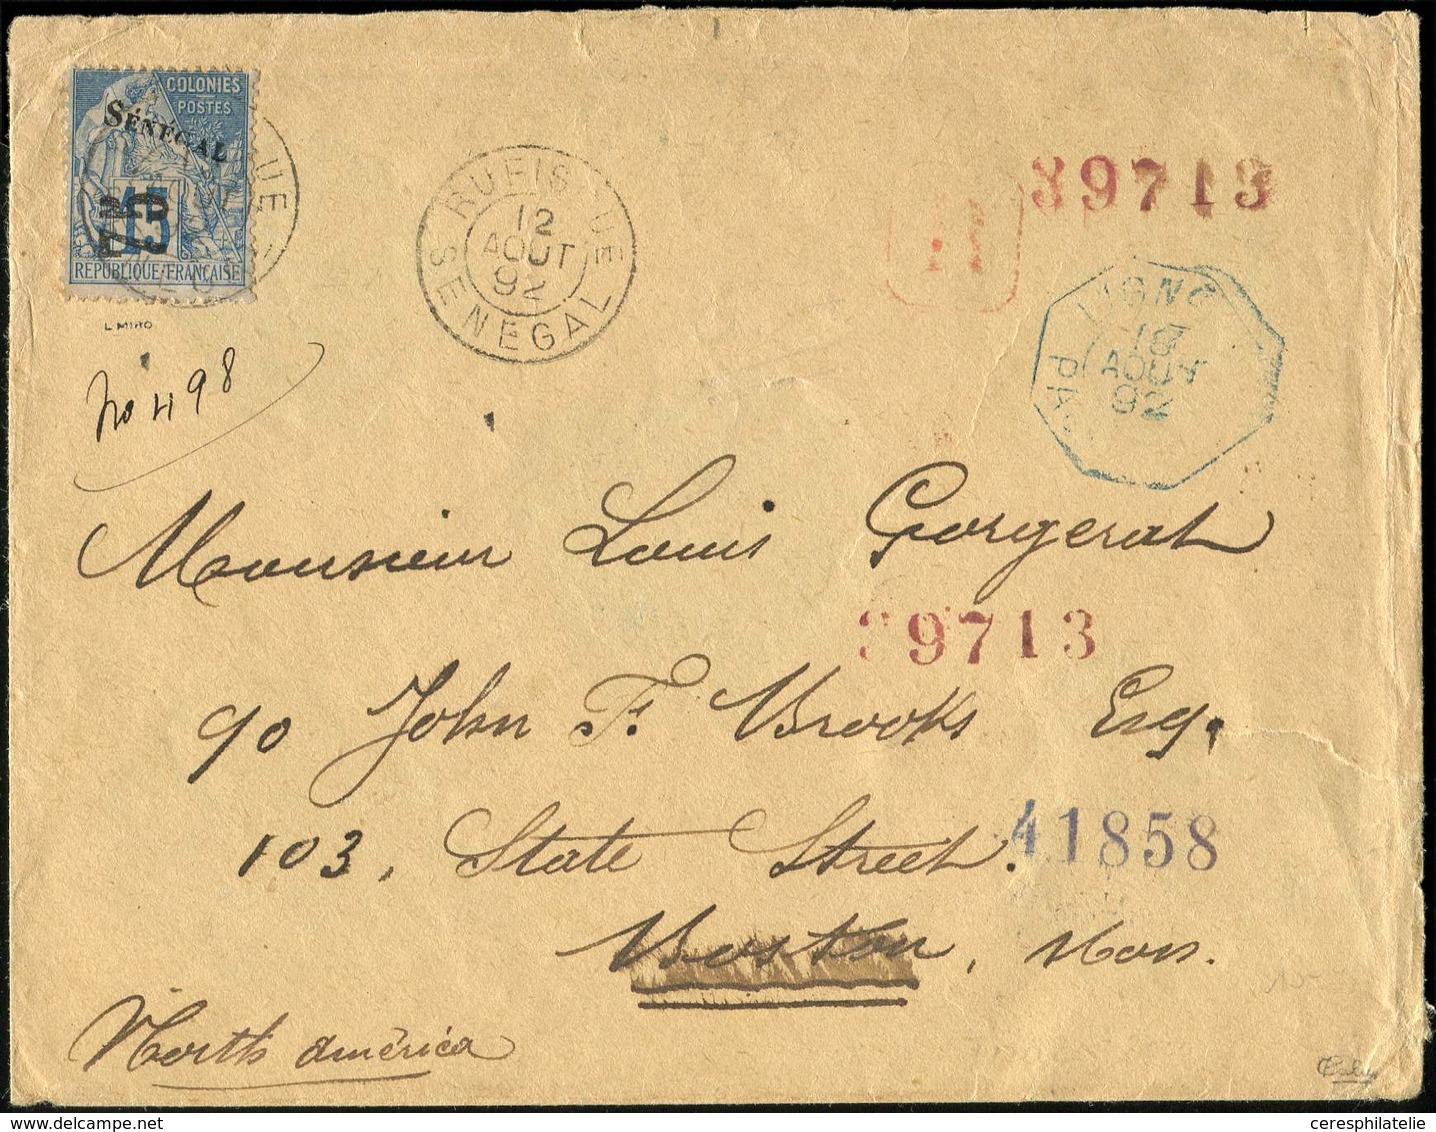 COLONIES
POSTES
SÉNÉGAL
75
15
RÉPUBLIQUE FRANÇAISE
L MIRO
RUFISQUE
12
AOUT
92
SENEGAL
R
39713
LIGNE
18
AOUT
92
PA
No 498
Monsieur Louis Gorgerat
39713
90 John F. Brooks Esq.
103, State Street.
41858
Boston, Mass.
North américa
Calves
ceresphilatelie